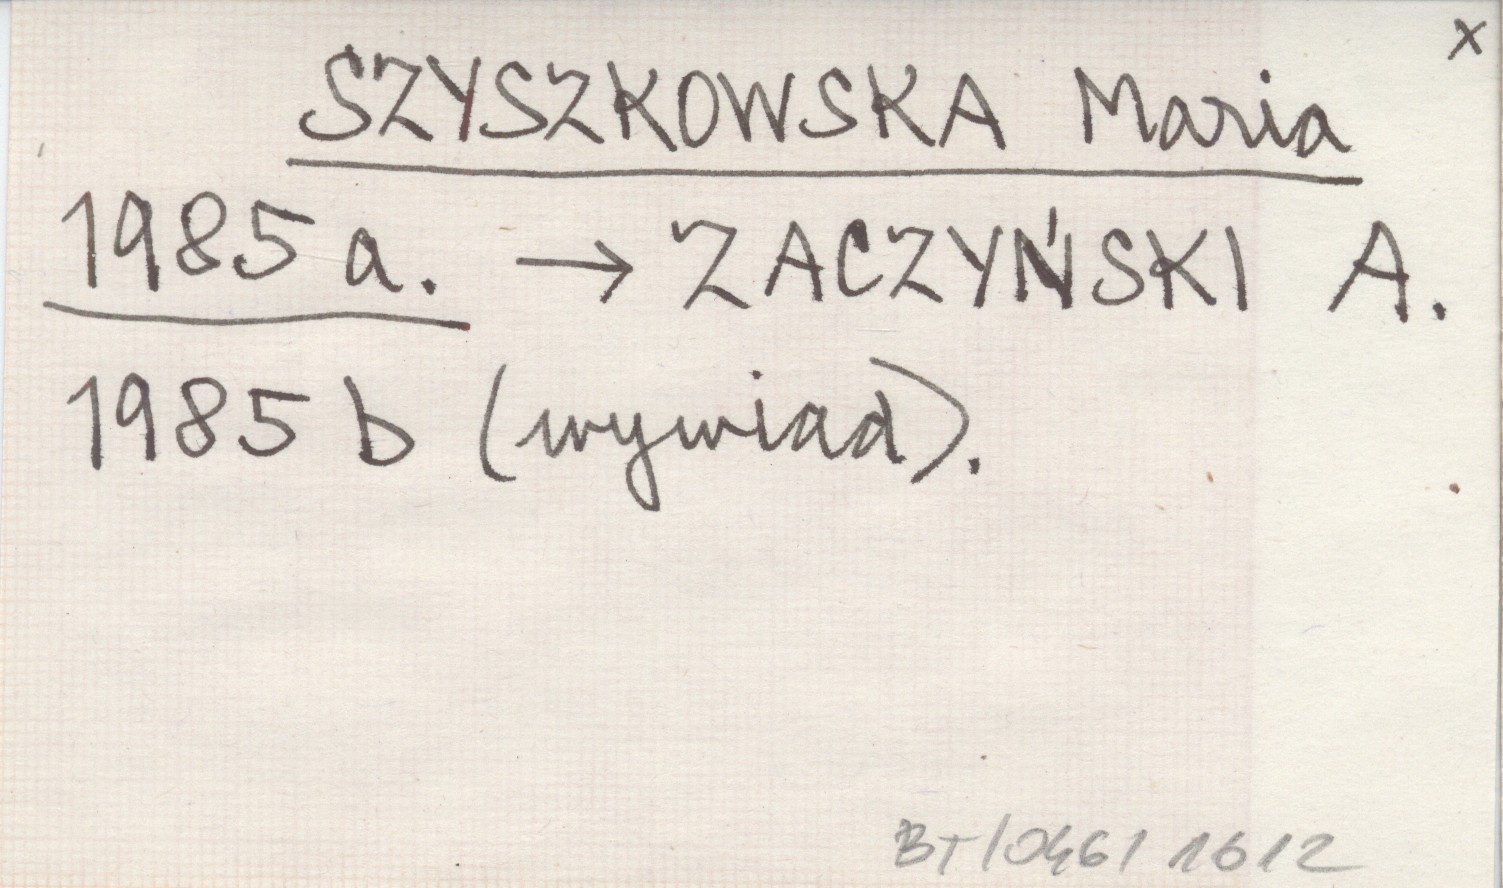 x
SZYSZKOWSKA Maria
1985 a. → ZACZYŃSKI A.
1985 b (wywiad).
BT/0461 1612